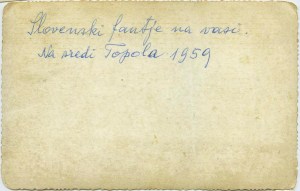 Slovenski fantje na vasi.
Na sredi Topola 1959